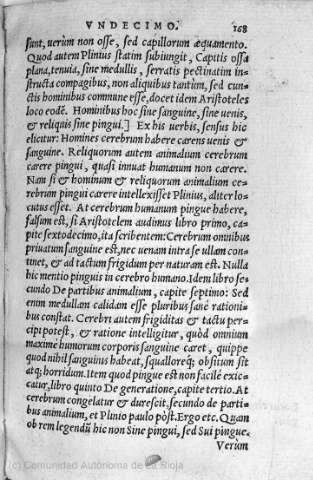 VNDECIMO. 168
sunt, uerùm non osse, sed capillorum æquamento.
Quod autem Plinius statim subiungit, Capitis ossa
plana, tenuia, sine medullis, serratis pectinatim in-
structa compagibus, non aliquibus tantùm, sed cun-
ctis hominibus commune esse, docet idem Aristoteles
loco eodē. Hominibus hoc sine sanguine, sine uenis,
& reliquis sine pingui.] Ex his uerbis, sensus hic
elicitur: Homines cerebrum habere carens uenis &
sanguine. Reliquorum autem animalium cerebrum
carere pingui, quasi innuat humanum non carere.
Nam si & hominum & reliquorum animalium ce-
rebrum pingui carere intellexisset Plinius, aliter lo-
cutus esset. At cerebrum humanum pingue habere,
falsum est, si Aristotelem audimus libro primo, ca-
pite sextodecimo, ita scribentem: Cerebrum omnibus
priuatum sanguine est, nec uenam intra se ullam con-
tinet, & ad tactum frigidum per naturam est. Nulla
hic mentio pinguis in cerebro humano. Idem libro se-
cundo De partibus animalium, capite septimo: Sed
enim medullam calidam esse pluribus sanè rationi-
bus constat. Cerebri autem frigiditas & tactu per-
cipi potest, & ratione intelligitur, quòd omnium
maxime humorum corporis sanguine caret, quippe
quod nihil sanguinis habeat, squalloreq; obsitum sit
atq; horridum. Item quod pingue est non facilè exic-
catur, libro quinto De generatione, capite tertio. At
cerebrum congelatur & durescit, secundo de parti-
bus animalium, et Plinio paulo pòst. Ergo etc. Quam
ob rem legendū hic non Sine pingui, sed Sui pingue.
Verum
(c) Comunidad Autónoma de La Rioja